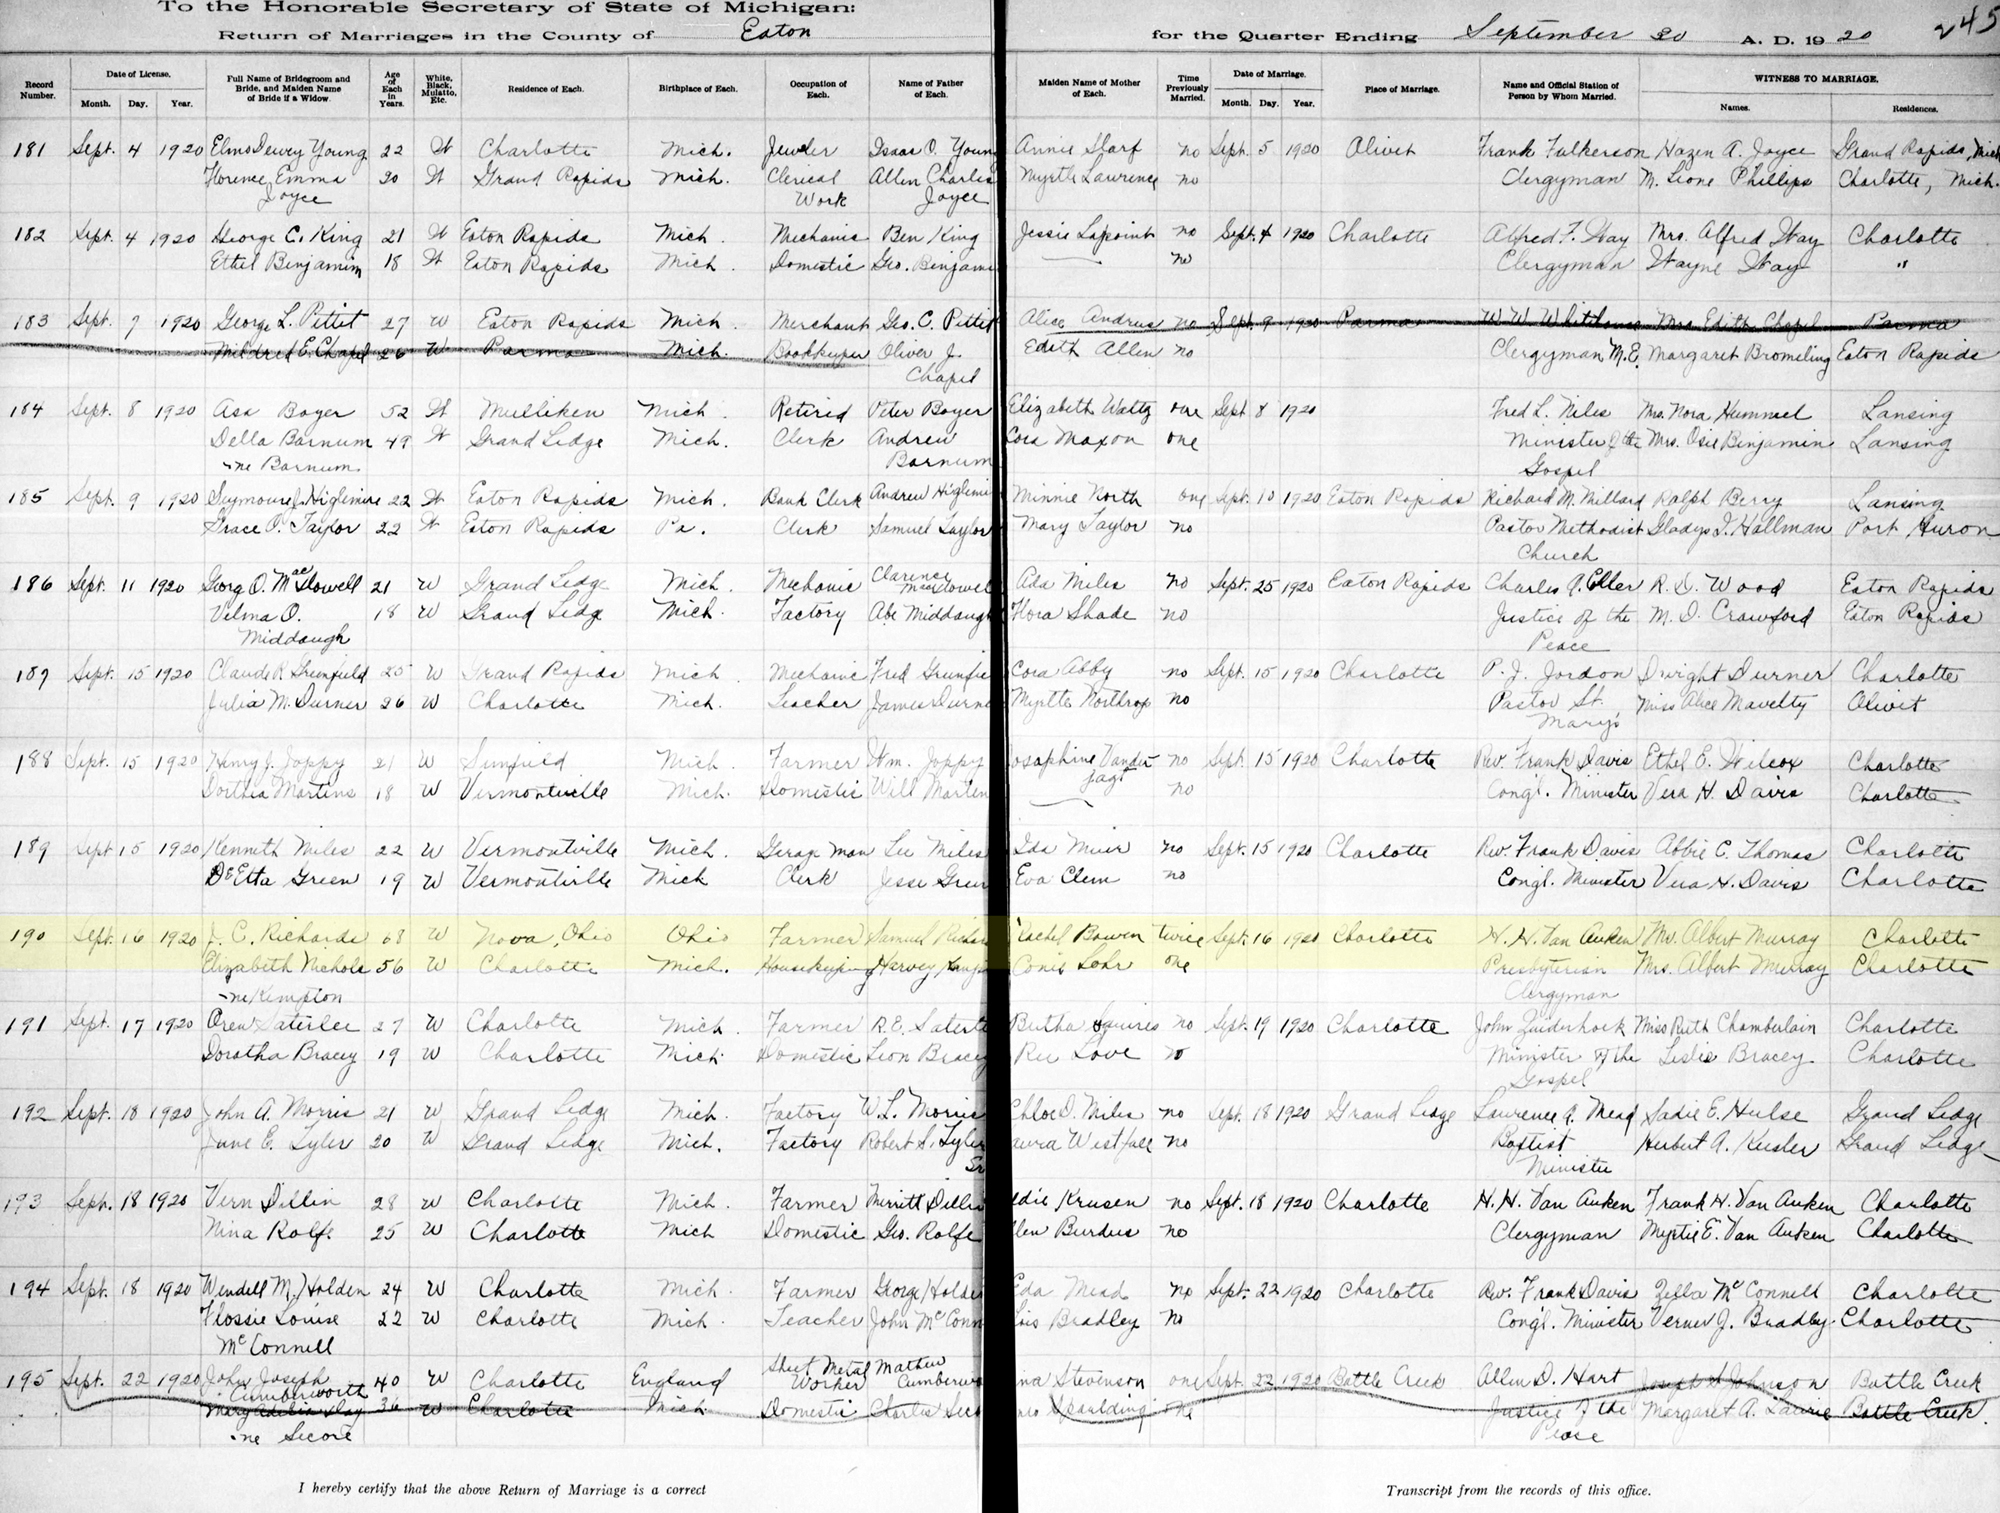 To the Honorable Secretary of State of Michigan:
Return of Marriages in the County of Eaton for the Quarter Ending September 30 A. D. 1920 245
Record Number. Date of License. Month. Day. Year. Full Name of Bridegroom and Bride, and Maiden Name of Bride if a Widow. Age of Each in Years. White, Black, Mulatto, Etc. Residence of Each. Birthplace of Each. Occupation of Each. Name of Father of Each. Maiden Name of Mother of Each. Time Previously Married. Date of Marriage. Month. Day. Year. Place of Marriage. Name and Official Station of Person by Whom Married. WITNESS TO MARRIAGE. Names. Residences.
181 Sept. 4 1920 Elms Dewey Young 22 W Charlotte Mich. Jeweler Isaac O. Young Annie Slarf no Sept. 5 1920 Olivet Frank Fulkerson Hazen A. Joyce Grand Rapids, Mich
Florence Emma 20 W Grand Rapids Mich. Clerical Allen Charles Myrtle Lawrence no Clergyman M. Leone Phillips Charlotte, Mich.
Joyce Work Joyce
182 Sept. 4 1920 George C. King 21 W Eaton Rapids Mich. Mechanic Ben King Jessie Lapoint no Sept. 4 1920 Charlotte Alfred F. Way Mrs. Alfred Way Charlotte
Ethel Benjamin 18 W Eaton Rapids Mich. Domestic Geo. Benjami no Clergyman Wayne Way "
183 Sept. 7 1920 George L. Pettit 27 W Eaton Rapids Mich. Merchant Geo. C. Pettit Alice Andrus no Sept. 9 1920 Parma W. W. Whitehouse Mrs Edith Chapel Parma
Mildred E. Chapel 26 W Parma Mich. Bookkeeper Oliver J. Edith Allen no Clergyman M.E. Margaret Bromeling Eaton Rapids
Chapel
184 Sept. 8 1920 Asa Boyer 52 W Mulliken Mich. Retired Peter Boyer Elizabeth Waltz one Sept. 8 1920 Fred L. Niles Mrs. Nora Hummel Lansing
Della Barnum 49 W Grand Ledge Mich. Clerk Andrew Cora Maxon one Minister of the Mrs. Osie Benjamin Lansing
-ne Barnum Barnum Gospel
185 Sept. 9 1920 Seymour J. Higlemire 22 W Eaton Rapids Mich. Bank Clerk Andrew Higlemi Minnie North one Sept. 10 1920 Eaton Rapids Richard M. Millard Ralph Berry Lansing
Grace O. Taylor 22 W Eaton Rapids Pa. Clerk Samuel Taylor Mary Taylor no Pastor Methodist Gladys I. Hallman Port Huron
Church
186 Sept. 11 1920 Georg O. MacDowell 21 W Grand Ledge Mich. Mechanic Clarence MacDowel Ada Miles no Sept. 25 1920 Eaton Rapids Charles A. Eller R. D. Wood Eaton Rapids
Velma O. 18 W Grand Ledge Mich. Factory Abe Middaugh Flora Shade no Justice of the M. D. Crawford Eaton Rapids
Middaugh Peace
187 Sept. 15 1920 Claude R Greenfield 25 W Grand Rapids Mich. Mechanic Fred Greenfie Cora Abby no Sept. 15 1920 Charlotte P. J. Jordon Dwight Durner Charlotte
Julia M. Durner 26 W Charlotte Mich. Teacher James Durne Myrtle Northrop no Pastor St. Miss Alice Mavelty Olivet
Mary's
188 Sept. 15 1920 Henry J. Joppy 21 W Sunfield Mich. Farmer Wm. Joppy Josephine Vander no Sept. 15 1920 Charlotte Rev. Frank Davis Ethel E. Wilcox Charlotte
Dorthea Martens 18 W Vermontville Mich. Domestic Will Marten jagt no Congl. Minister Vera H. Davis Charlotte
189 Sept 15 1920 Kenneth Miles 22 W Vermontville Mich. Garage Man Lee Miles Ida Muir no Sept. 15 1920 Charlotte Rev. Frank Davis Abbie C. Thomas Charlotte
DeEtta Green 19 W Vermontville Mich Clerk Jesse Green Eva Clem no Congl. Minister Vera H. Davis Charlotte
190 Sept. 16 1920 J. C. Richards 68 W Nova, Ohio Ohio Farmer Samuel Richar Rachel Bowen twice Sept. 16 1920 Charlotte H. H. Van Auken Mr. Albert Murray Charlotte
Elizabeth Nichols 56 W Charlotte Mich. Housekeeping Harvey Kempt Conis Lohr one Presbyterian Mrs. Albert Murray Charlotte
-ne Kempton Clergyman
191 Sept. 17 1920 Oren Saterlee 27 W Charlotte Mich. Farmer R. E. Saterle Bertha Squires no Sept. 19 1920 Charlotte John Zuiderhoek Miss Ruth Chamberlain Charlotte
Doratha Bracey 19 W Charlotte Mich. Domestic Leon Bracey Ree Love no Minister of the Leslie Bracey Charlotte
Gospel
192 Sept. 18 1920 John A. Morris 21 W Grand Ledge Mich. Factory W. L. Morris Chloe D. Miles no Sept. 18 1920 Grand Ledge Laurence A. Mead Sadie E. Hulse Grand Ledge
June E. Tyler 20 W Grand Ledge Mich. Factory Robert S. Tyler aura Westfall no Baptist Herbert A. Kusler Grand Ledge
Sr Minister
193 Sept. 18 1920 Vern Dillin 28 W Charlotte Mich. Farmer Merritt Dillin ddie Krusen no Sept. 18 1920 Charlotte H. H. Van Auken Frank H. Van Auken Charlotte
Nina Rolfe 25 W Charlotte Mich Domestic Geo. Rolfe llen Burdus no Clergyman Myrtie E. Van Auken Charlotte
194 Sept. 18 1920 Wendell M. Holden 24 W Charlotte Mich. Farmer George Holde Eda Mead no Sept. 22 1920 Charlotte Rev. Frank Davis Zella McConnell Charlotte
Flossie Louise 22 W Charlotte Mich. Teacher John McConn Lois Bradley no Congl. Minister Verner J. Bradley Charlotte
McConnell
195 Sept. 22 1920 John Joseph Cumberworth 40 W Charlotte England Sheet Metal Worker Mathew Cumberwo na Stevenson one Sept. 22 1920 Battle Creek Allen D. Hart Joseph S. Johnson Battle Creek
Mary Adelia Day 36 W Charlotte Mich Domestic Charles Seco Spaulding one Justice of the Margaret A. Laurie Battle Creek.
-ne Secore Peace
I hereby certify that the above Return of Marriage is a correct Transcript from the records of this office.